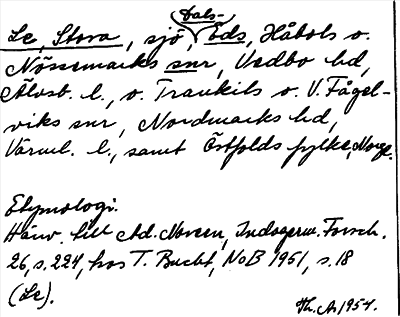 Dals-
Le, Stora, sjö, Eds, Håbols o.
Nössemarks snr, Vedbo hd,
Älvsb. l., o. Trankils o. V. Fågel-
viks snr, Nordmarks hd,
Värml. l., samt Östfolds fylke, Norge.
Etymologi.
Hänv. till Ad. Noreen, Indogerm. Forsch.
26, s. 224, hos T. Bucht, NoB 1951, s. 18
(Le).
Th. A. 1954.